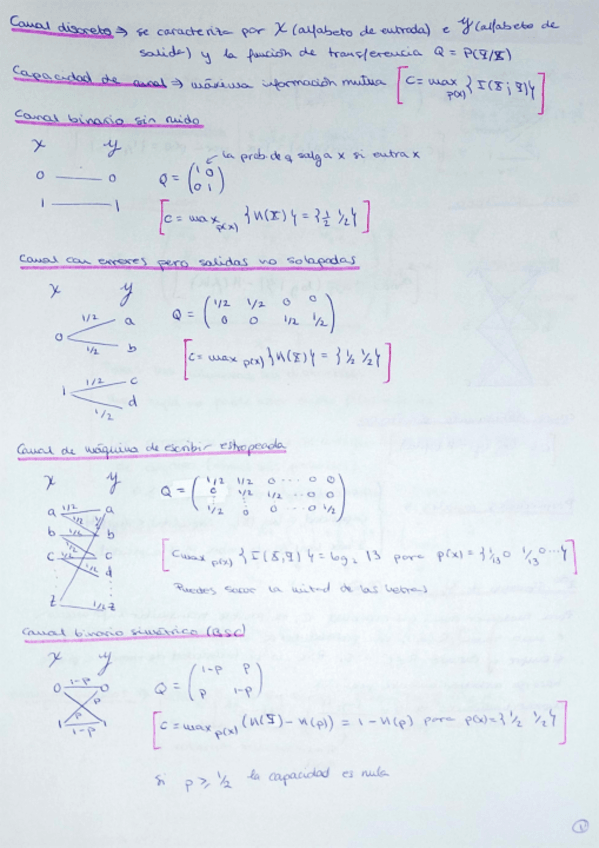 Canal discreto → se caracteriza por X (alfabeto de entrada) e Y (alfabeto de
salida) y la función de transferencia Q = P(Y/X)
Capacidad de canal → máxima información mutua [C = max p(x) {I(X;Y)}]
Canal binario sin ruido
X Y
la prob de q salga x si entra x
0 0
Q = (1 0
0 1)
1 1
[C = max p(x) {H(X)} = {1/2 1/2}]
Canal con errores pero salidas no solapadas
X Y
1/2 a
Q = (1/2 1/2 0 0
0 0 1/2 1/2)
0
1/2 b
[C = max p(x) {H(X)} = {1/2 1/2}]
1 1/2 c
1/2 d
Canal de máquina de escribir estropeada
X Y
Q = (1/2 1/2 0 ... 0 0
0 1/2 1/2 ... 0 0
1/2 0 0 ... 0 1/2)
a 1/2 a
b 1/2 b
c 1/2 c
d
z 1/2 z
[C max p(x) {I(X,Y)} = log₂ 13 para p(x) = {1/13 0 1/13 0...}]
Puedes sacar la mitad de las letras
Canal binario simétrico (BSC)
X Y
0 1-p 0
p
Q = (1-p p
p 1-p)
p
1 1-p 1
[C = max p(x) (H(Y) - H(p)) = 1 - H(p) para p(x) = {1/2 1/2}]
Si p ≥ 1/2 la capacidad es nula
1